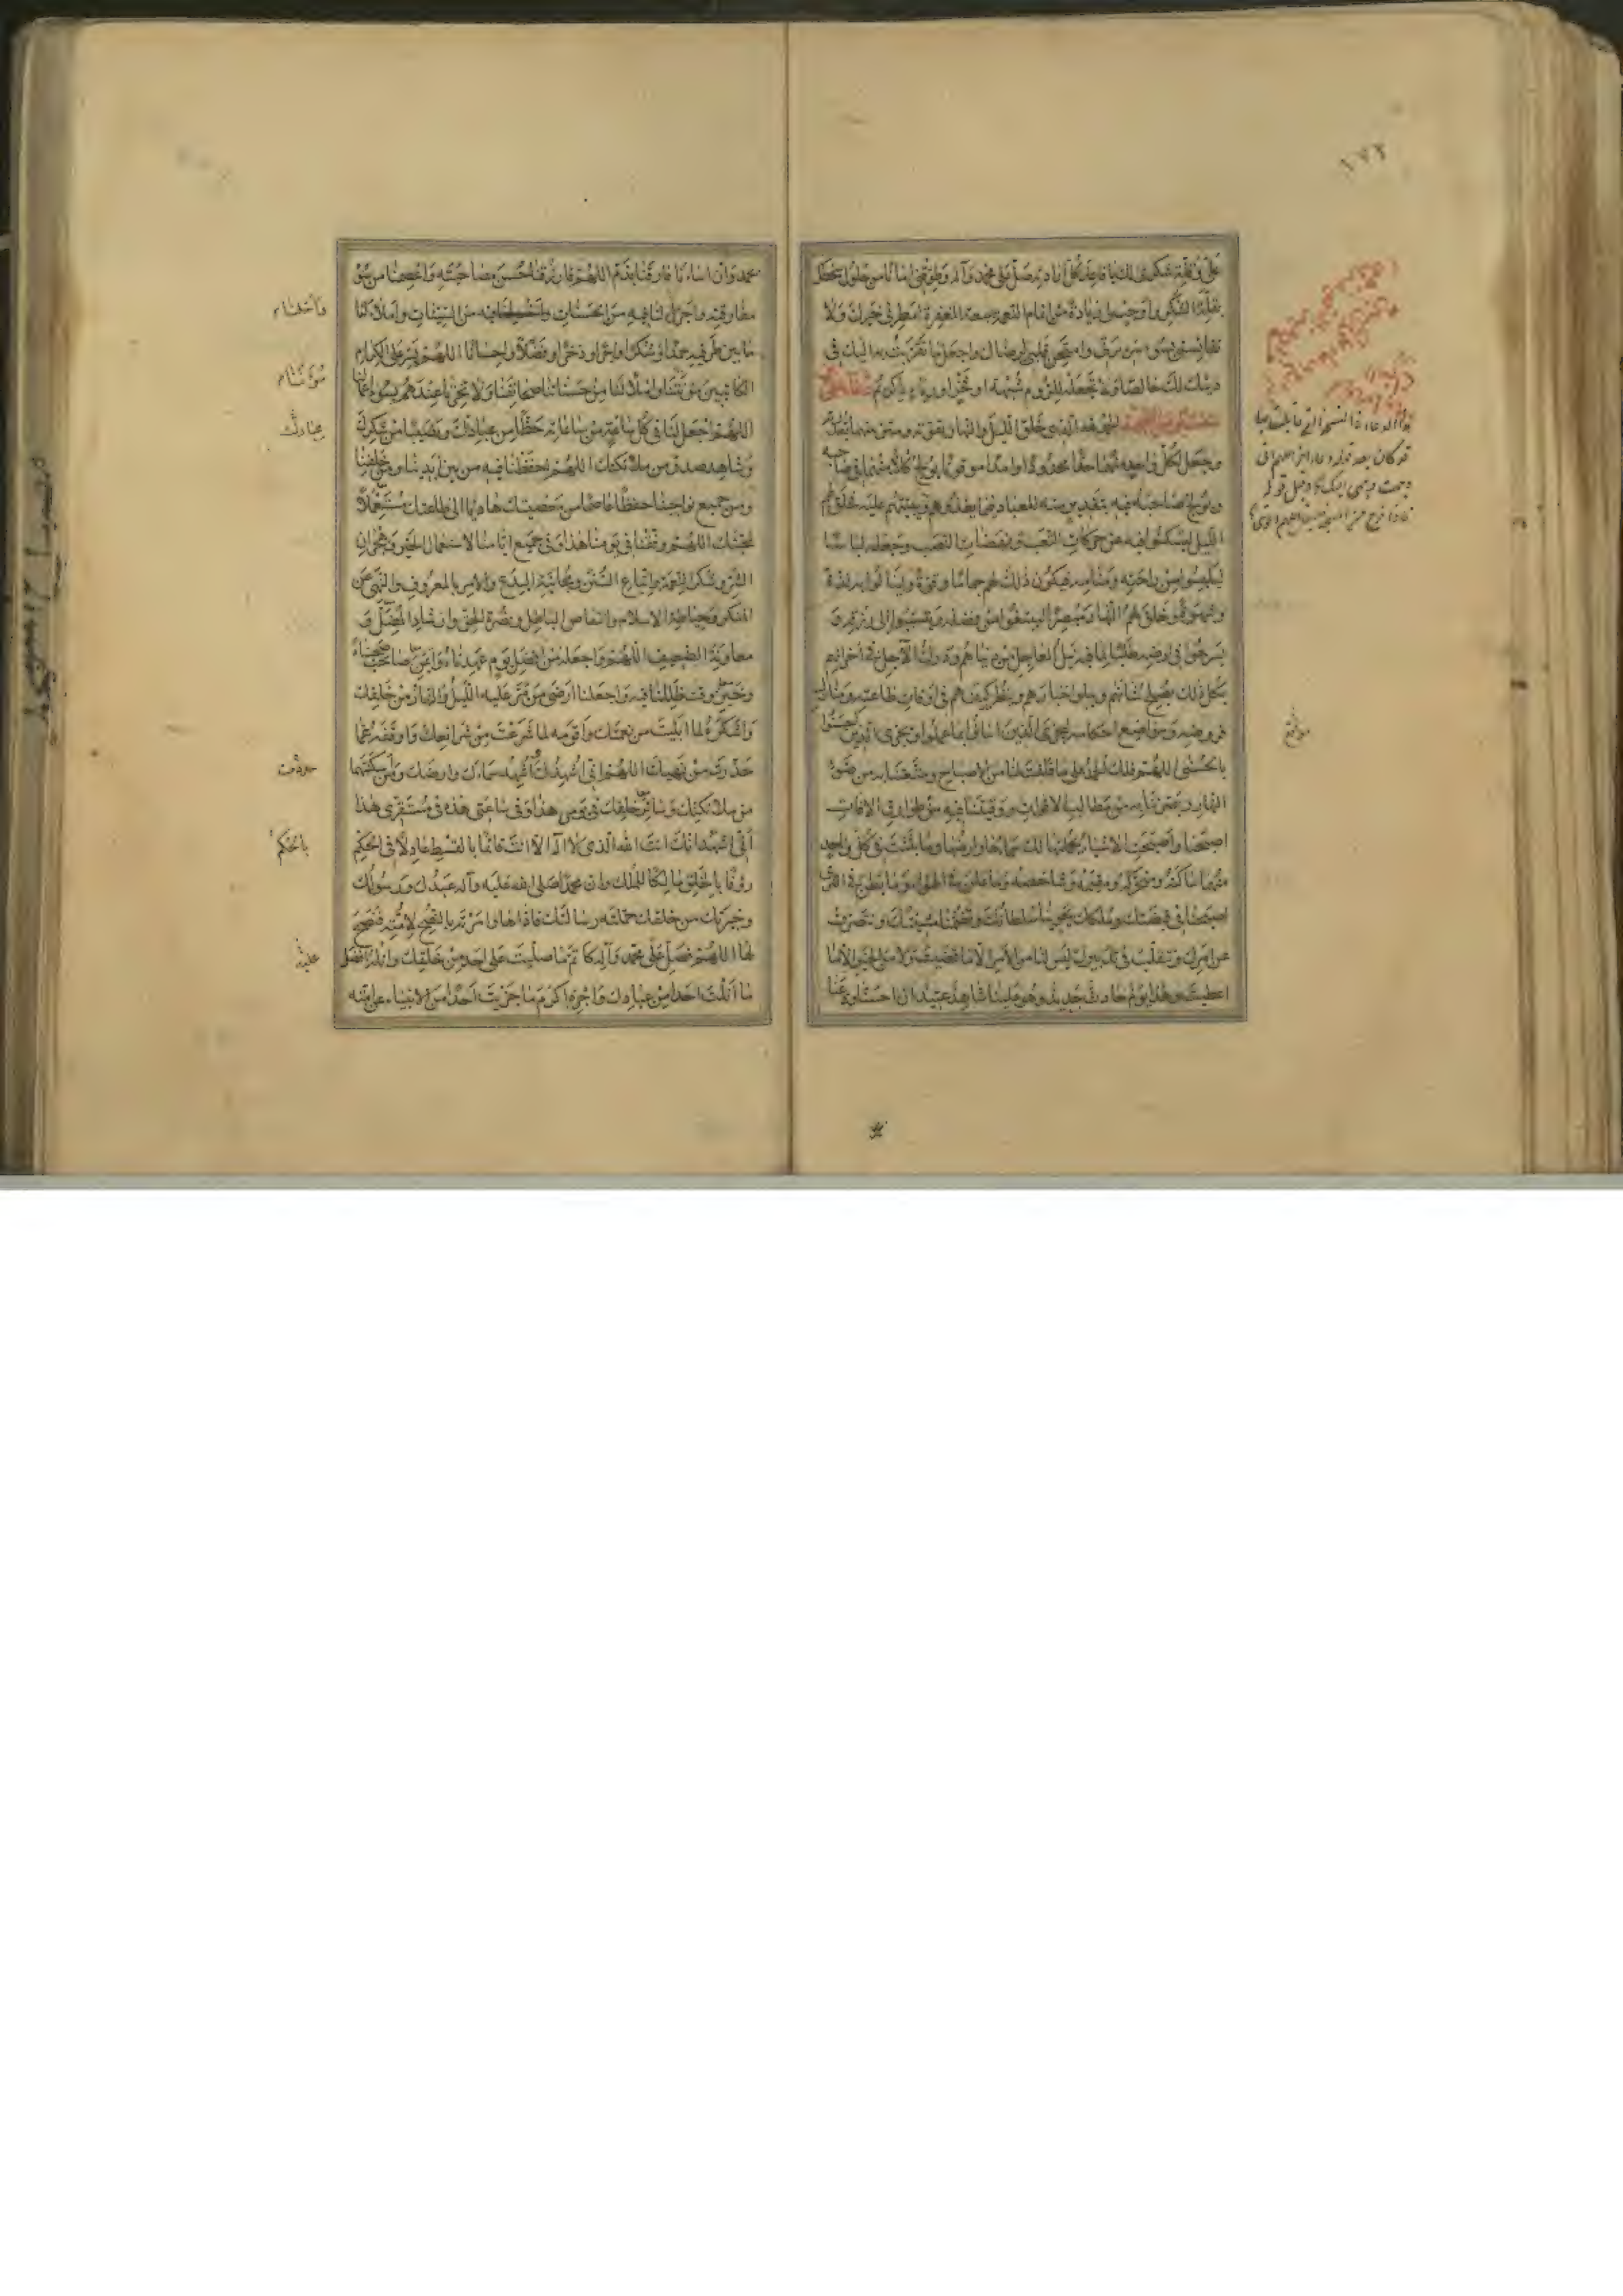 ١٧٢
على قلة شكري لك يا فاعل كل ارادته صل على محمد وآله وطوقني امانا من حلول سخطك
بقلة الشكر واوجب لي زيادة من اتمام النعمة بسعة المغفرة امطرني خيرك ولا
تقايسني بسوء سريرتي وامتحن قلبي لرضاك واجعل ما تقربت به اليك في
دينك لك خالصا ولا تجعله للزوم شبهة او فخر او رياء يا كريم ثم
اللهم الحمد لله الذي خلق الليل والنهار بقوته وميز بينهما بقدرته
وجعل لكل واحد منهما حدا محدودا وامدا موقوتا يولج كلا منهما في صاحبه
ويولج صاحبه فيه بتقدير منه للعباد فيما يغذوهم به وينشئهم عليه فخلق لهم
الليل ليسكنوا فيه من حركات التعب ونهضات النصب وجعله لباسا
ليلبسوا من راحته ومنامه فيكون ذلك لهم جماما وقوة ولينالوا به لذة
وشهوة وخلق لهم النهار مبصرا ليبتغوا من فضله وليتسببوا الى رزقه و
يسرحوا في ارضه طلبا لما فيه نيل العاجل من دنياهم ودرك الآجل في اخراهم
بكل ذلك يصلح شانهم ويبلو اخبارهم وينظر كيف هم في اوقات طاعته ومنازل
فروضه ومواضع احكامه ليجزي الذين اساؤا بما عملوا ويجزي الذين احسنوا
بالحسنى اللهم فلك الحمد على ما فلقت لنا من الاصباح ومتعتنا به من ضوء
النهار وبصرتنا به من مطالب الاقوات ووقيتنا فيه من طوارق الافات
اصبحنا واصبحت الاشياء بجملتها لك سماؤها وارضها وما بثثت في كل واحد
منهما ساكنه ومتحركه ومقيمه وشاخصه وما علن في الهواء وما بطن في الثرى
اصبحنا في قبضتك وملكك يحوينا سلطانك وتضمنا مشيتك ونتصرف
عن امرك ونتقلب في تدبيرك ليس لنا من الامر الا ما قضيت ولا من الخير الا ما
اعطيت وهذا يوم حادث جديد وهو علينا شاهد عتيد ان احسنا ودعنا
محمد وان اسانا فارقنا بذم اللهم فارزقنا حسن مصاحبته واعصمنا من سوء
مفارقته واجزل لنا فيه من الحسنات واخلنا فيه من السيئات واملأ لنا
ما بين طرفيه حمدا وشكرا واجرا وذخرا وفضلا واحسانا اللهم يسر على الكرام
الكاتبين مؤنتنا واملأ لنا من حسناتنا صحائفنا ولا تخزنا عندهم بسوء اعمالنا
اللهم اجعل لنا في كل ساعة من ساعاته حظا من عبادتك ونصيبا من شكرك
وشاهد صدق من ملائكتك اللهم احفظنا فيه من بين ايدينا ومن خلفنا
ومن جميع نواحينا حفظا عاصما من معصيتك هاديا الى طاعتك مستعملا
لمحبتك اللهم وفقنا في يومنا هذا وفي جميع ايامنا لاستعمال الخير وهجران
الشر وشكر النعمة واتباع السنن ومجانبة البدع والامر بالمعروف والنهي عن
المنكر وحياطة الاسلام وانتقاص الباطل ونصرة الحق وارشاد الضال و
معاونة الضعيف اللهم واجعله من افضل يوم عهدناه وايمن صاحب صحبناه
وخير وقت ظللنا فيه واجعلنا ارضى من مر عليه الليل والنهار من خلقك
واشكره لما ابليت من نعمك واقومه لما شرعت من شرائعك واوقفه عما
حذرت من نهيك اللهم اني اشهدك واشهد سماءك وارضك ومن اسكنتهما
من ملائكتك وسائر خلقك في يومي هذا وفي ساعتي هذه في مستقري هذا
اني اشهد انك انت الله الذي لا اله الا انت قائما بالقسط عادلا في الحكم
رؤفا بالخلق مالكا للملك وان محمدا صلى الله عليه وآله عبدك ورسولك
وخيرتك من خلقك حملته رسالتك فاداها وامرته بالنصح لامته فنصح
لها اللهم فصل على محمد وآله كاتم ما صليت على احد من خلقك وانله افضل
ما انلت احدا من عبادك واجزه اكرم ما جزيت احدا من الانبياء عن امته
عبادك
بالحكم
عليه